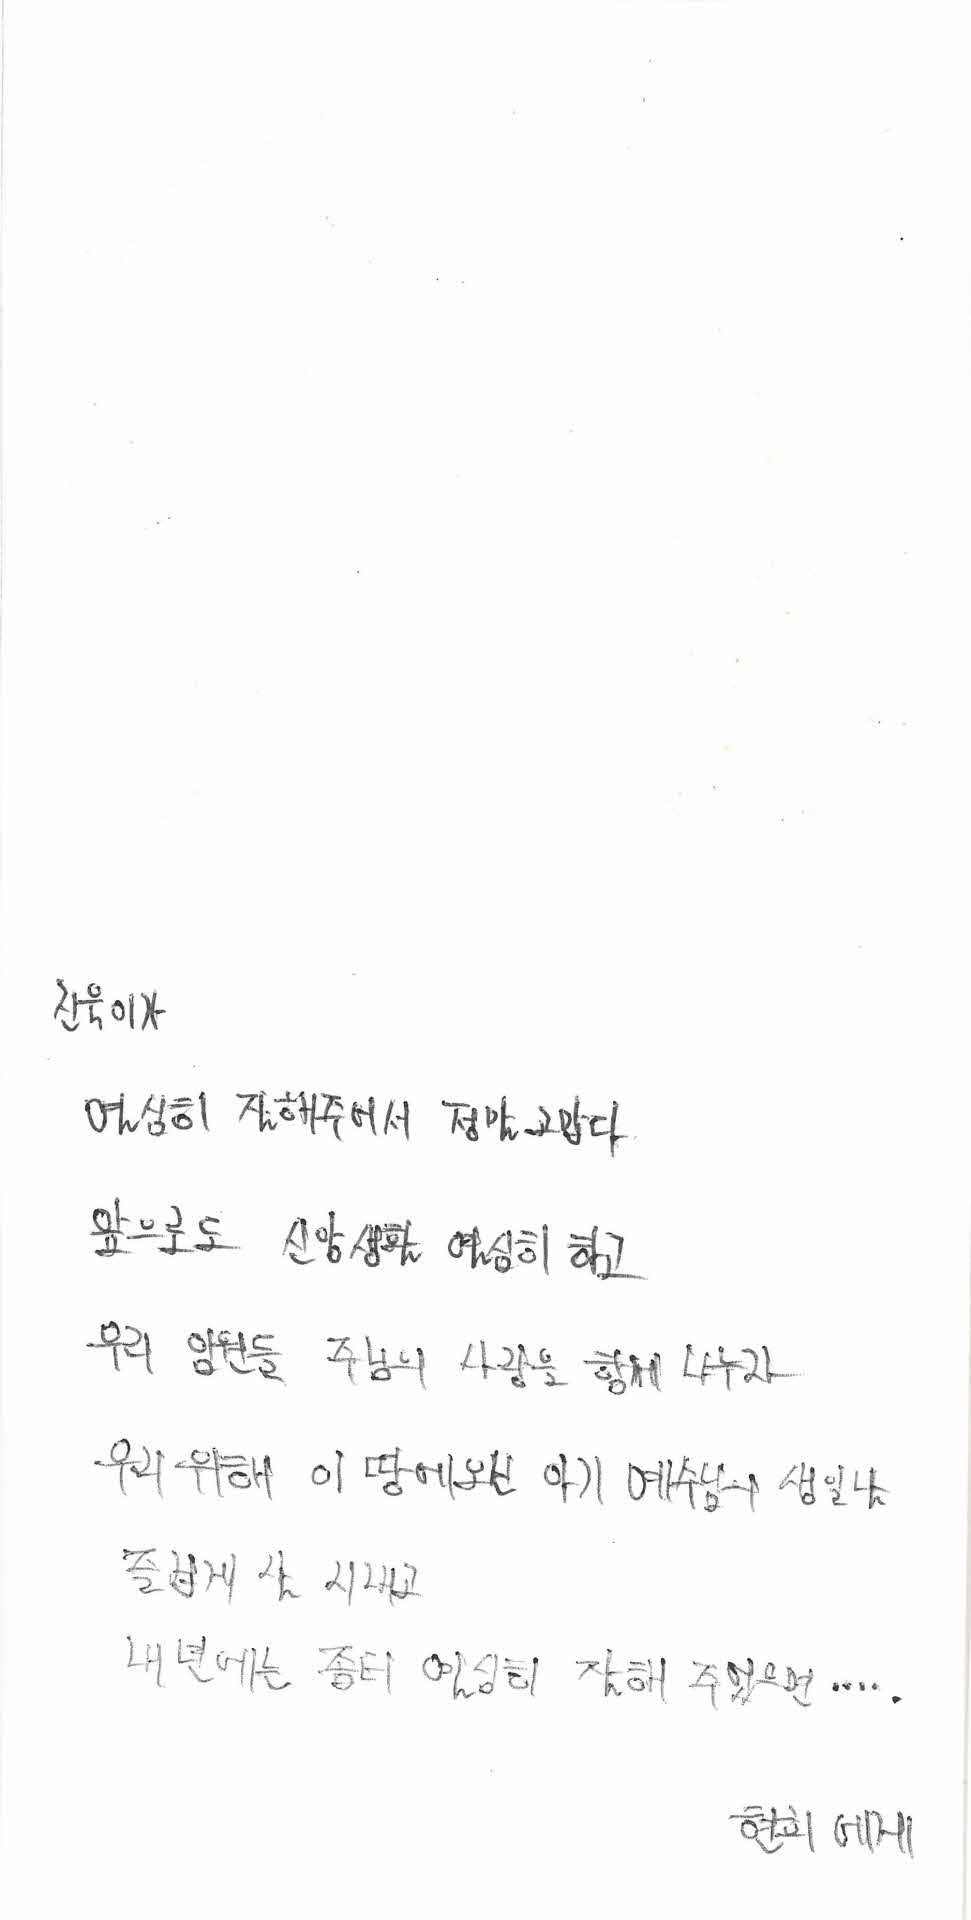 찬욱이가
열심히 잘해주어서 정말 고맙다
앞으로도 신앙생활 열심히 하고
우리 암원들 주님의 사랑을 함께 나누자
우리 위해 이 땅에 오신 아기 예수님의 생일날
즐겁게 잘 지내고
내년에는 좀더 열심히 잘해 주었으면 .....
현희 에게